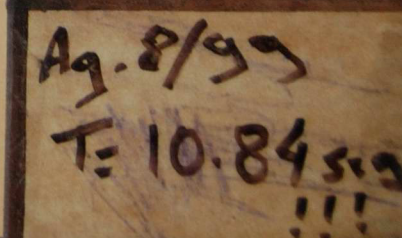 Ag. 8/99
T= 10.84 sig
!!!